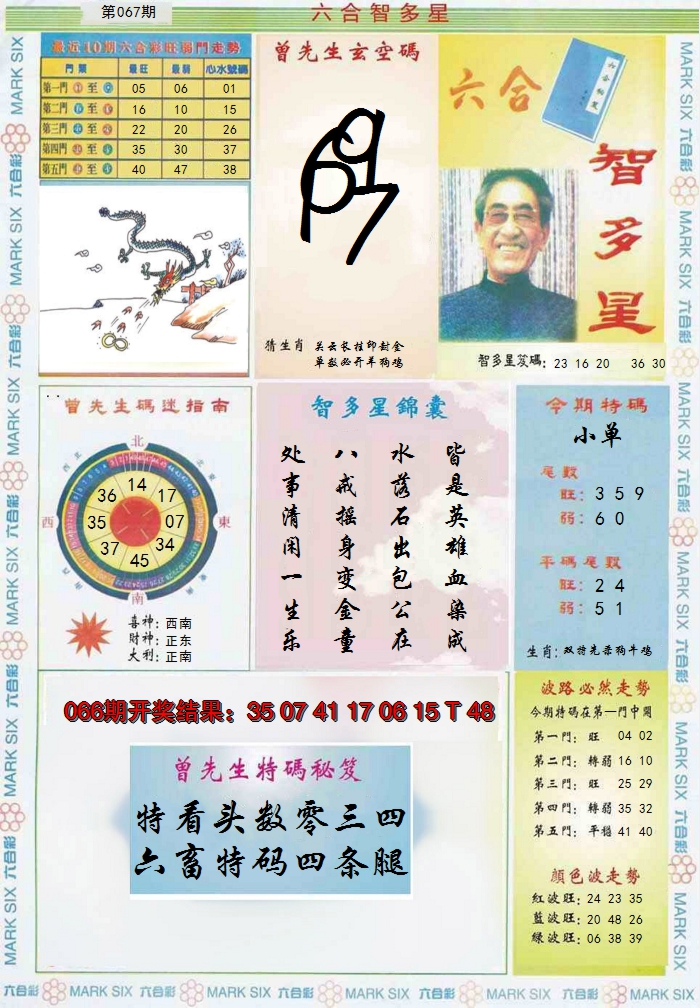 第067期
六合智多星
最近10期六合彩旺弱門走勢
門類 最旺 最弱 心水號碼
第一門 至 05 06 01
第二門 至 16 10 15
第三門 至 22 20 26
第四門 至 35 30 37
第五門 至 40 47 38
曾先生玄空碼
猜生肖 关云长挂印封金
单数必开羊狗鸡
六合
智多星
智多星笈碼: 23 16 20 36 30
曾先生碼迷指南
北
西北 東北
14
36 17
西 35 07 東
37 34
45
南
喜神: 西南
财神: 正东
大利: 正南
智多星錦囊
皆是英雄血染成
水落石出包公在
八戒摇身变金童
处事清闲一生乐
今期特碼
小单
尾數
旺: 3 5 9
弱: 6 0
平碼尾數
旺: 2 4
弱: 5 1
生肖: 双特先杀狗牛鸡
066期开奖结果: 35 07 41 17 06 15 T 48
曾先生特碼秘笈
特看头数零三四
六畜特码四条腿
波路必然走勢
今期特碼在第一門中開
第一門: 旺 04 02
第二門: 轉弱 16 10
第三門: 旺 25 29
第四門: 轉弱 35 32
第五門: 平穩 41 40
顏色波走勢
紅波旺: 24 23 35
藍波旺: 20 48 26
綠波旺: 06 38 39
MARK SIX 六合彩